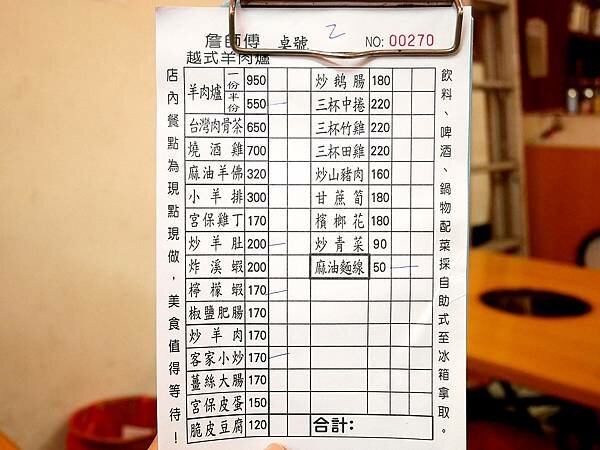 詹師傅 桌號 2 NO: 00270
越式羊肉爐
店內餐點為現點現做，美食值得等待！
羊肉爐 一份 950
半份 550 —
台灣肉骨茶 650
燒酒雞 700
麻油羊佛 320
小羊排 300
宮保雞丁 170
炒羊肚 200 —
炸溪蝦 200
檸檬蝦 170 —
椒鹽肥腸 170
炒羊肉 170
客家小炒 170 —
薑絲大腸 170
宮保皮蛋 150
脆皮豆腐 120
炒鵝腸 180
三杯中捲 220
三杯竹雞 220
三杯田雞 220
炒山豬肉 160
甘蔗筍 180
檳榔花 180
炒青菜 90
麻油麵線 50 —
合計:
飲料、啤酒、鍋物配菜採自助式至冰箱拿取。